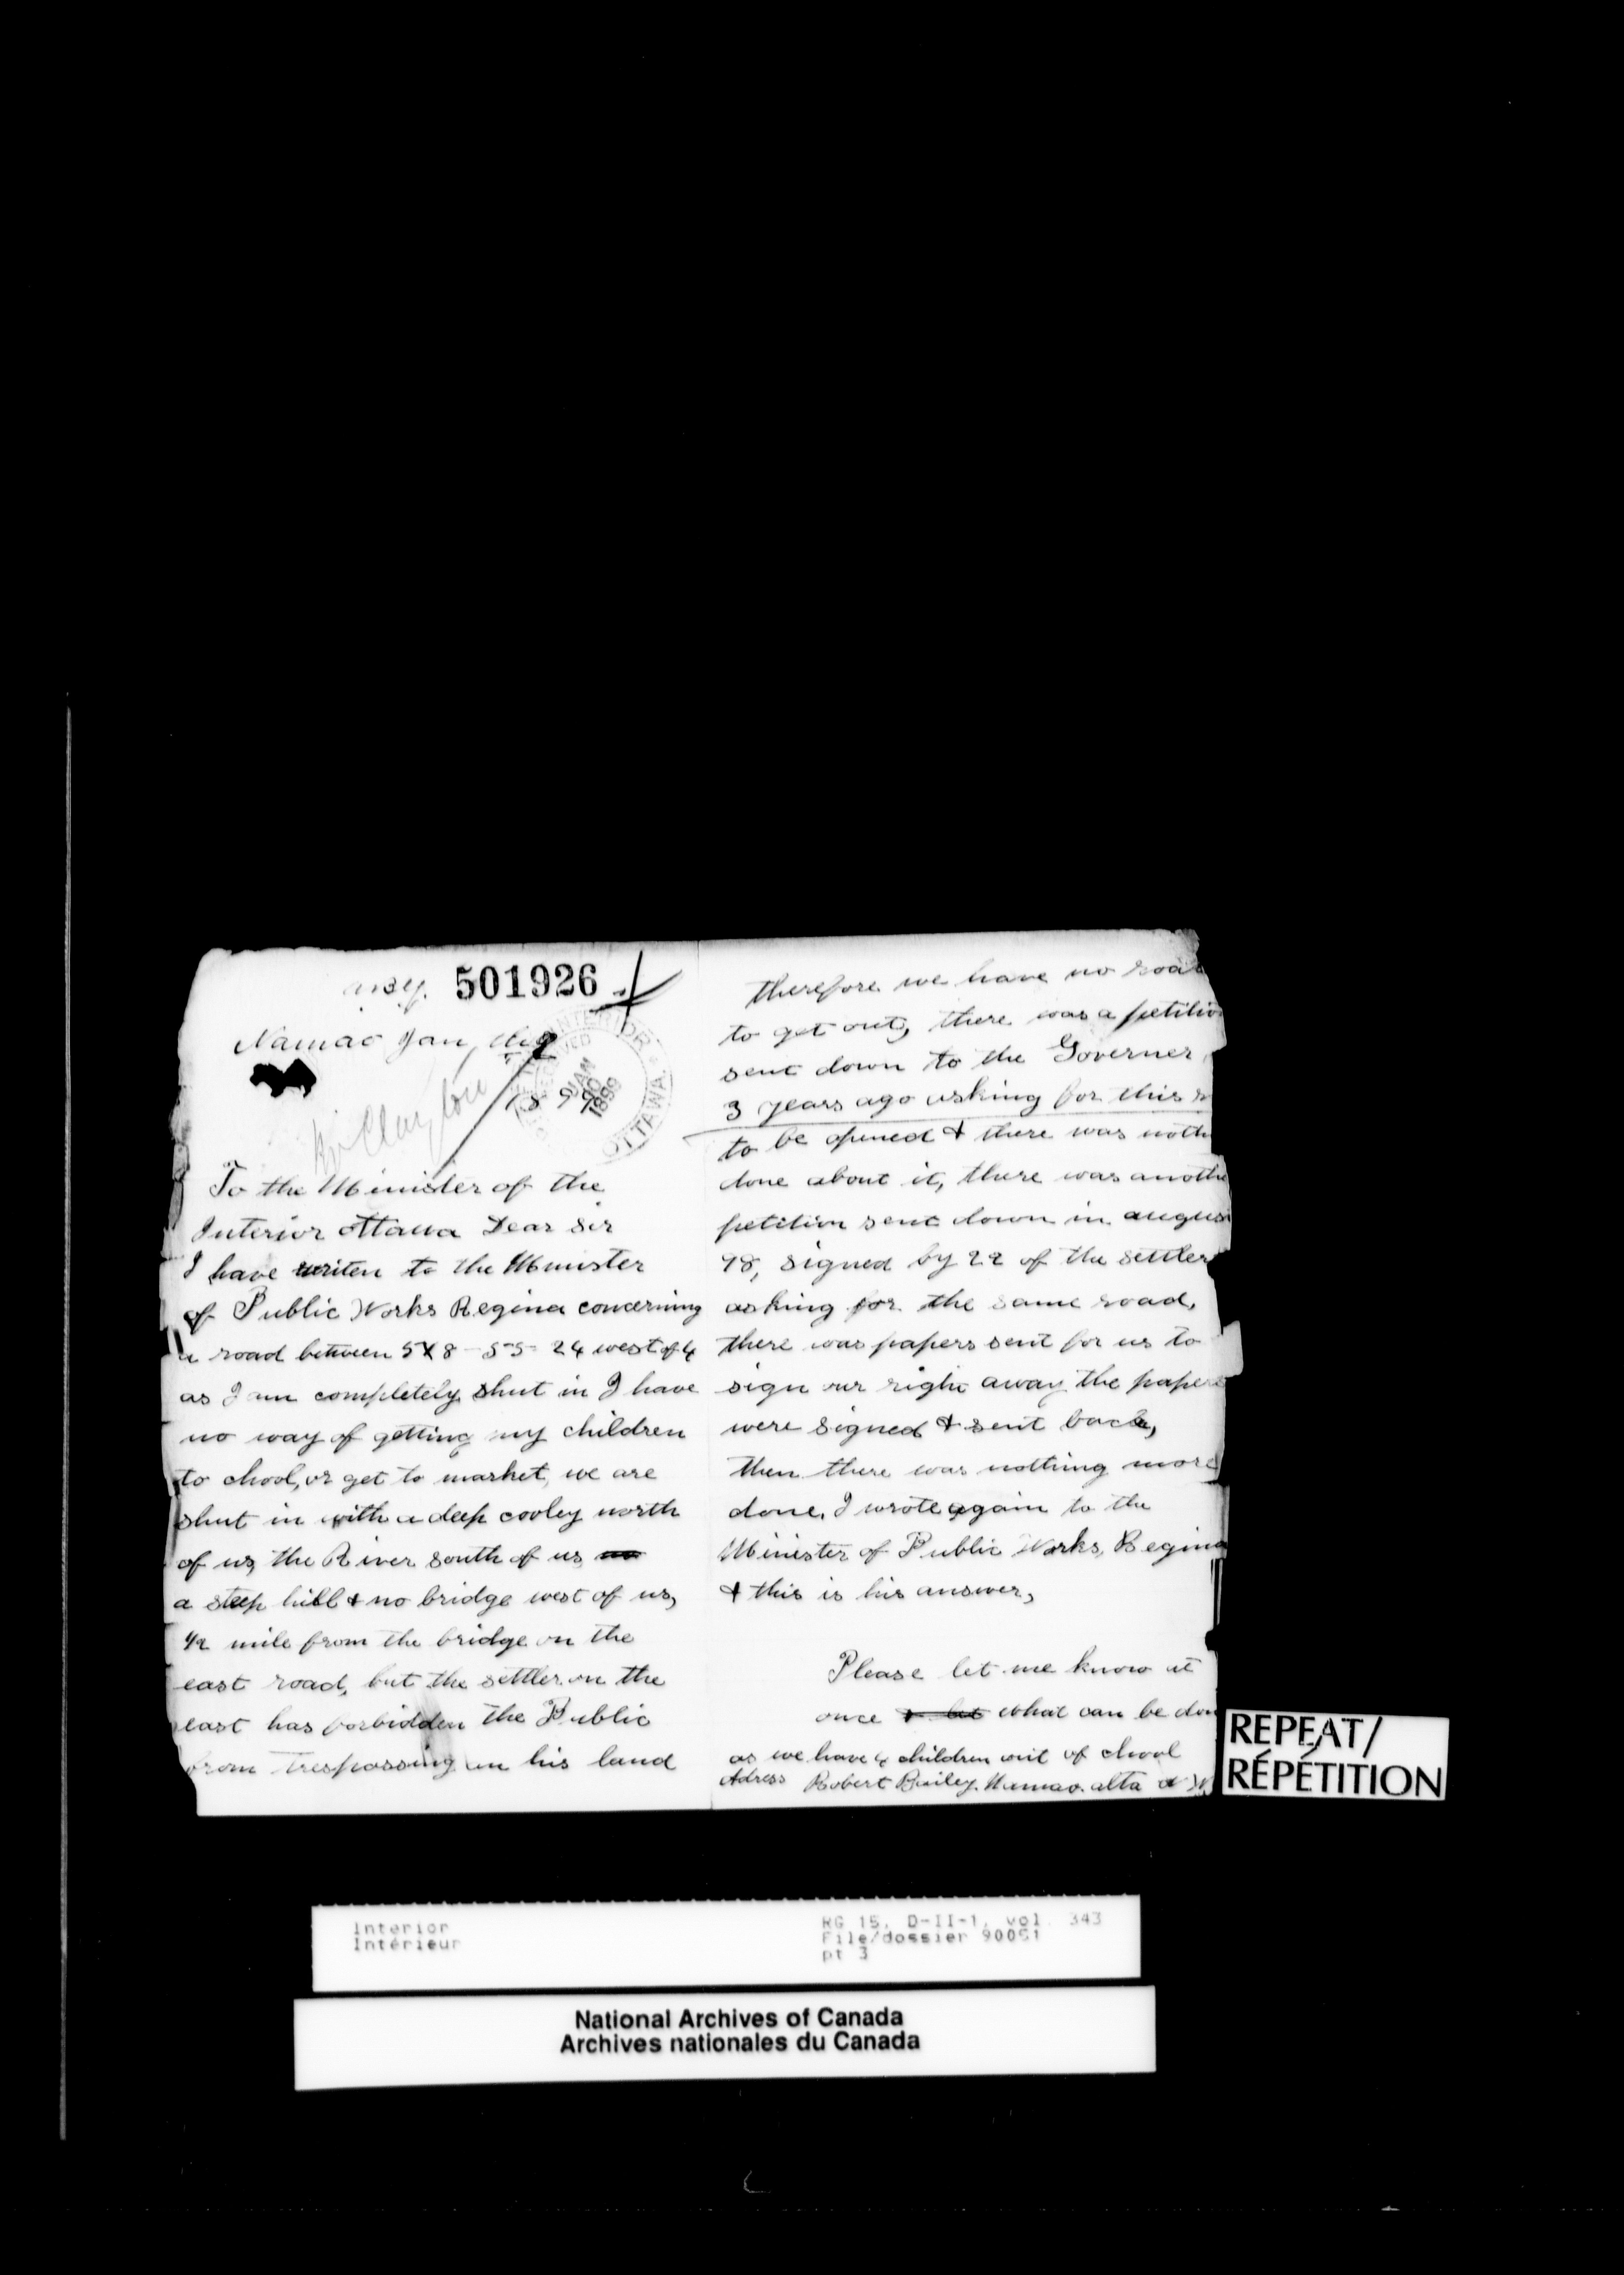 501926
Namao Jan
INTERIOR
RECEIVED
JAN
1899
OTTAWA
To the Minister of the
Interior ottawa Dear Sir
I have writen to the Minister
of Public Works Regina concerning
a road between 5 & 8 - 55 - 24 west of 4
as I am completely shut in I have
no way of getting my children
to chool, or get to market, we are
shut in with a deep cooley north
of us, the River south of us
a steep hill & no bridge west of us,
1/2 mile from the bridge on the
east road, but the settler on the
east has forbidden the Public
from trespassing on his land
therefore we have no road
to get out, there was a petitio
sent down to the Governer
3 years ago asking for this
to be opened & there was noth
done about it, there was anothe
petition sent down in august
98, signed by 22 of the settler
asking for the same road,
there was papers sent for us to
sign our right away the papers
were signed & sent back,
then there was nothing more
done, I wrote again to the
Minister of Public Works, Regina
& this is his answer,
Please let me know at
once what can be don
as we have 4 children out of chool
Adress Robert Bailey. Namao. alta
REPEAT/
RÉPÉTITION
Interior
Intérieur
RG 15, D-II-1, vol. 343
File/dossier
pt 3
National Archives of Canada
Archives nationales du Canada